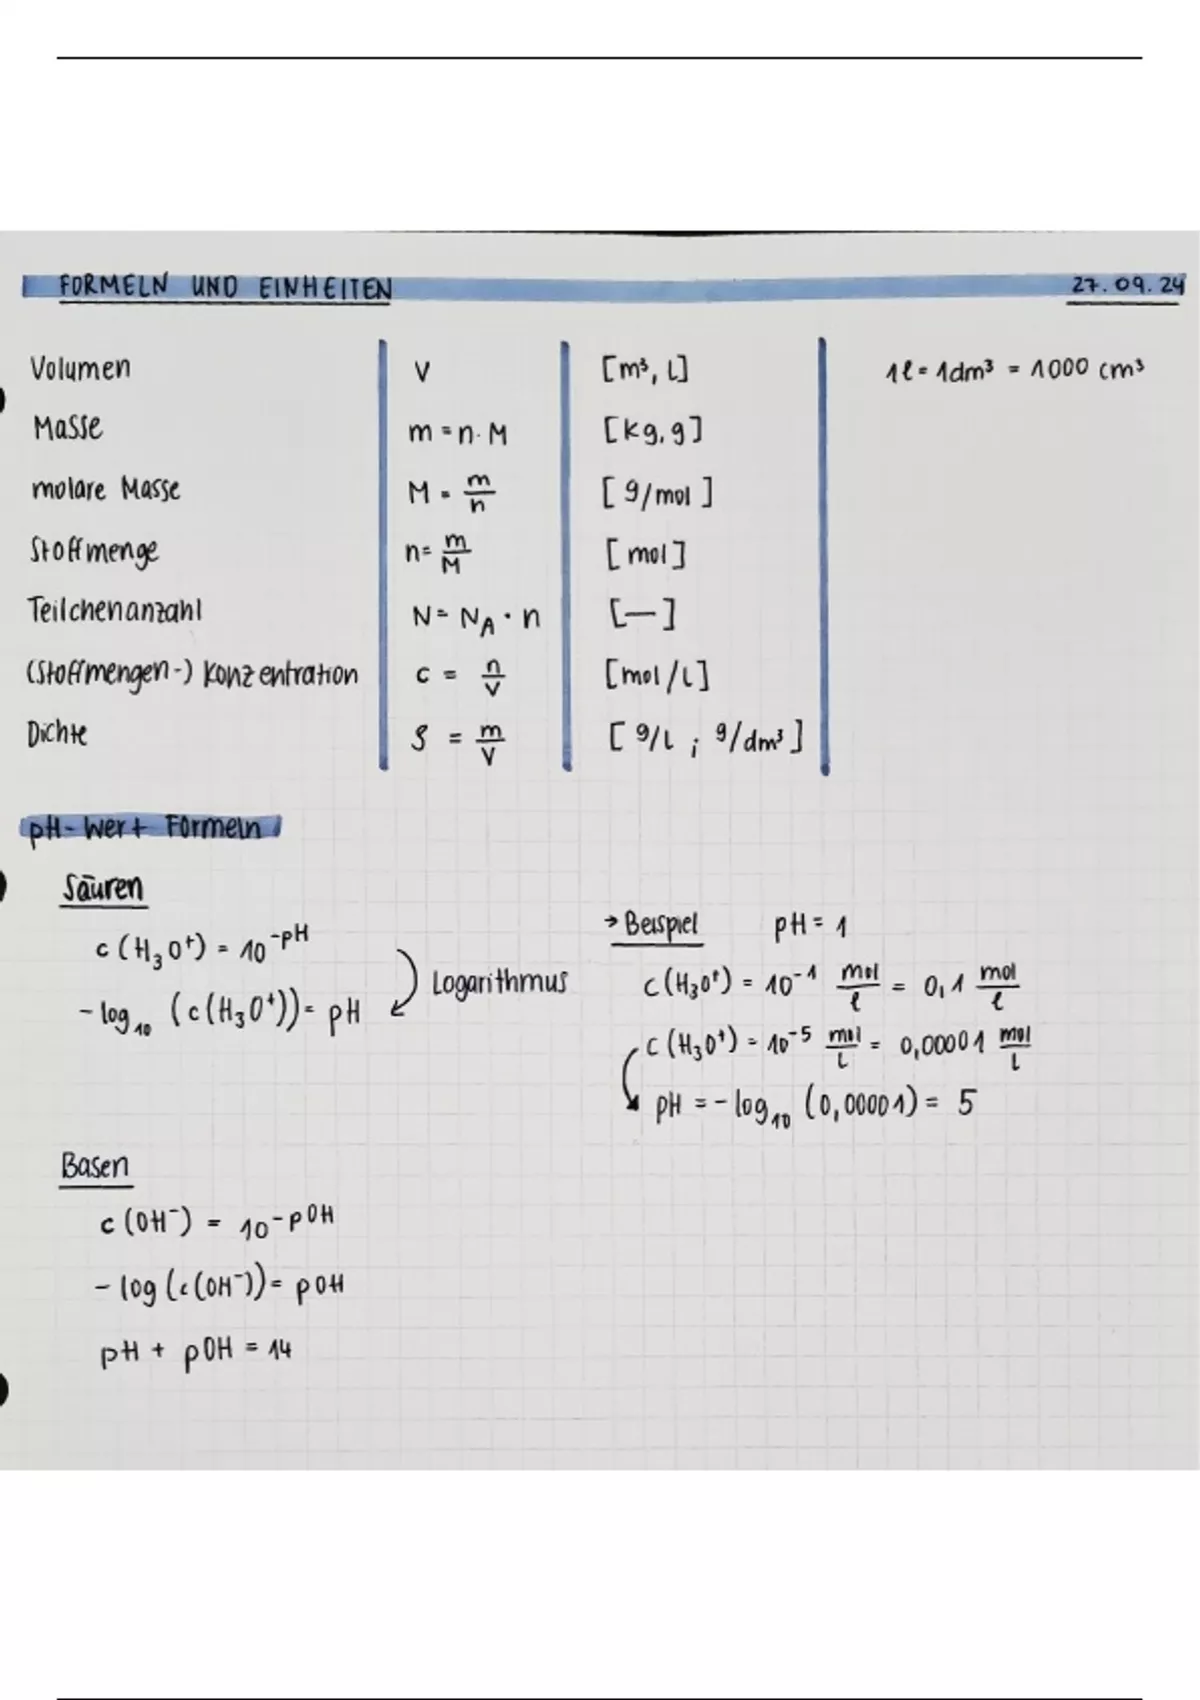 FORMELN UND EINHEITEN 27.09.24
Volumen V [m³, l] 1l = 1dm³ = 1000 cm³
Masse m = n · M [kg, g]
molare Masse M = m/n [g/mol]
Stoffmenge n = m/M [mol]
Teilchenanzahl N = N_A · n [—]
(Stoffmengen-) Konzentration c = n/V [mol/l]
Dichte ρ = m/V [g/l ; g/dm³]
pH-Wert Formeln
Säuren
→ Beispiel pH = 1
c (H₃O⁺) = 10^-pH
Logarithmus
c (H₃O⁺) = 10⁻¹ mol/l = 0,1 mol/l
-log₁₀ (c (H₃O⁺)) = pH
c (H₃O⁺) = 10⁻⁵ mol/l = 0,00001 mol/l
pH = - log₁₀ (0,00001) = 5
Basen
c (OH⁻) = 10^-pOH
- log (c (OH⁻)) = pOH
pH + pOH = 14